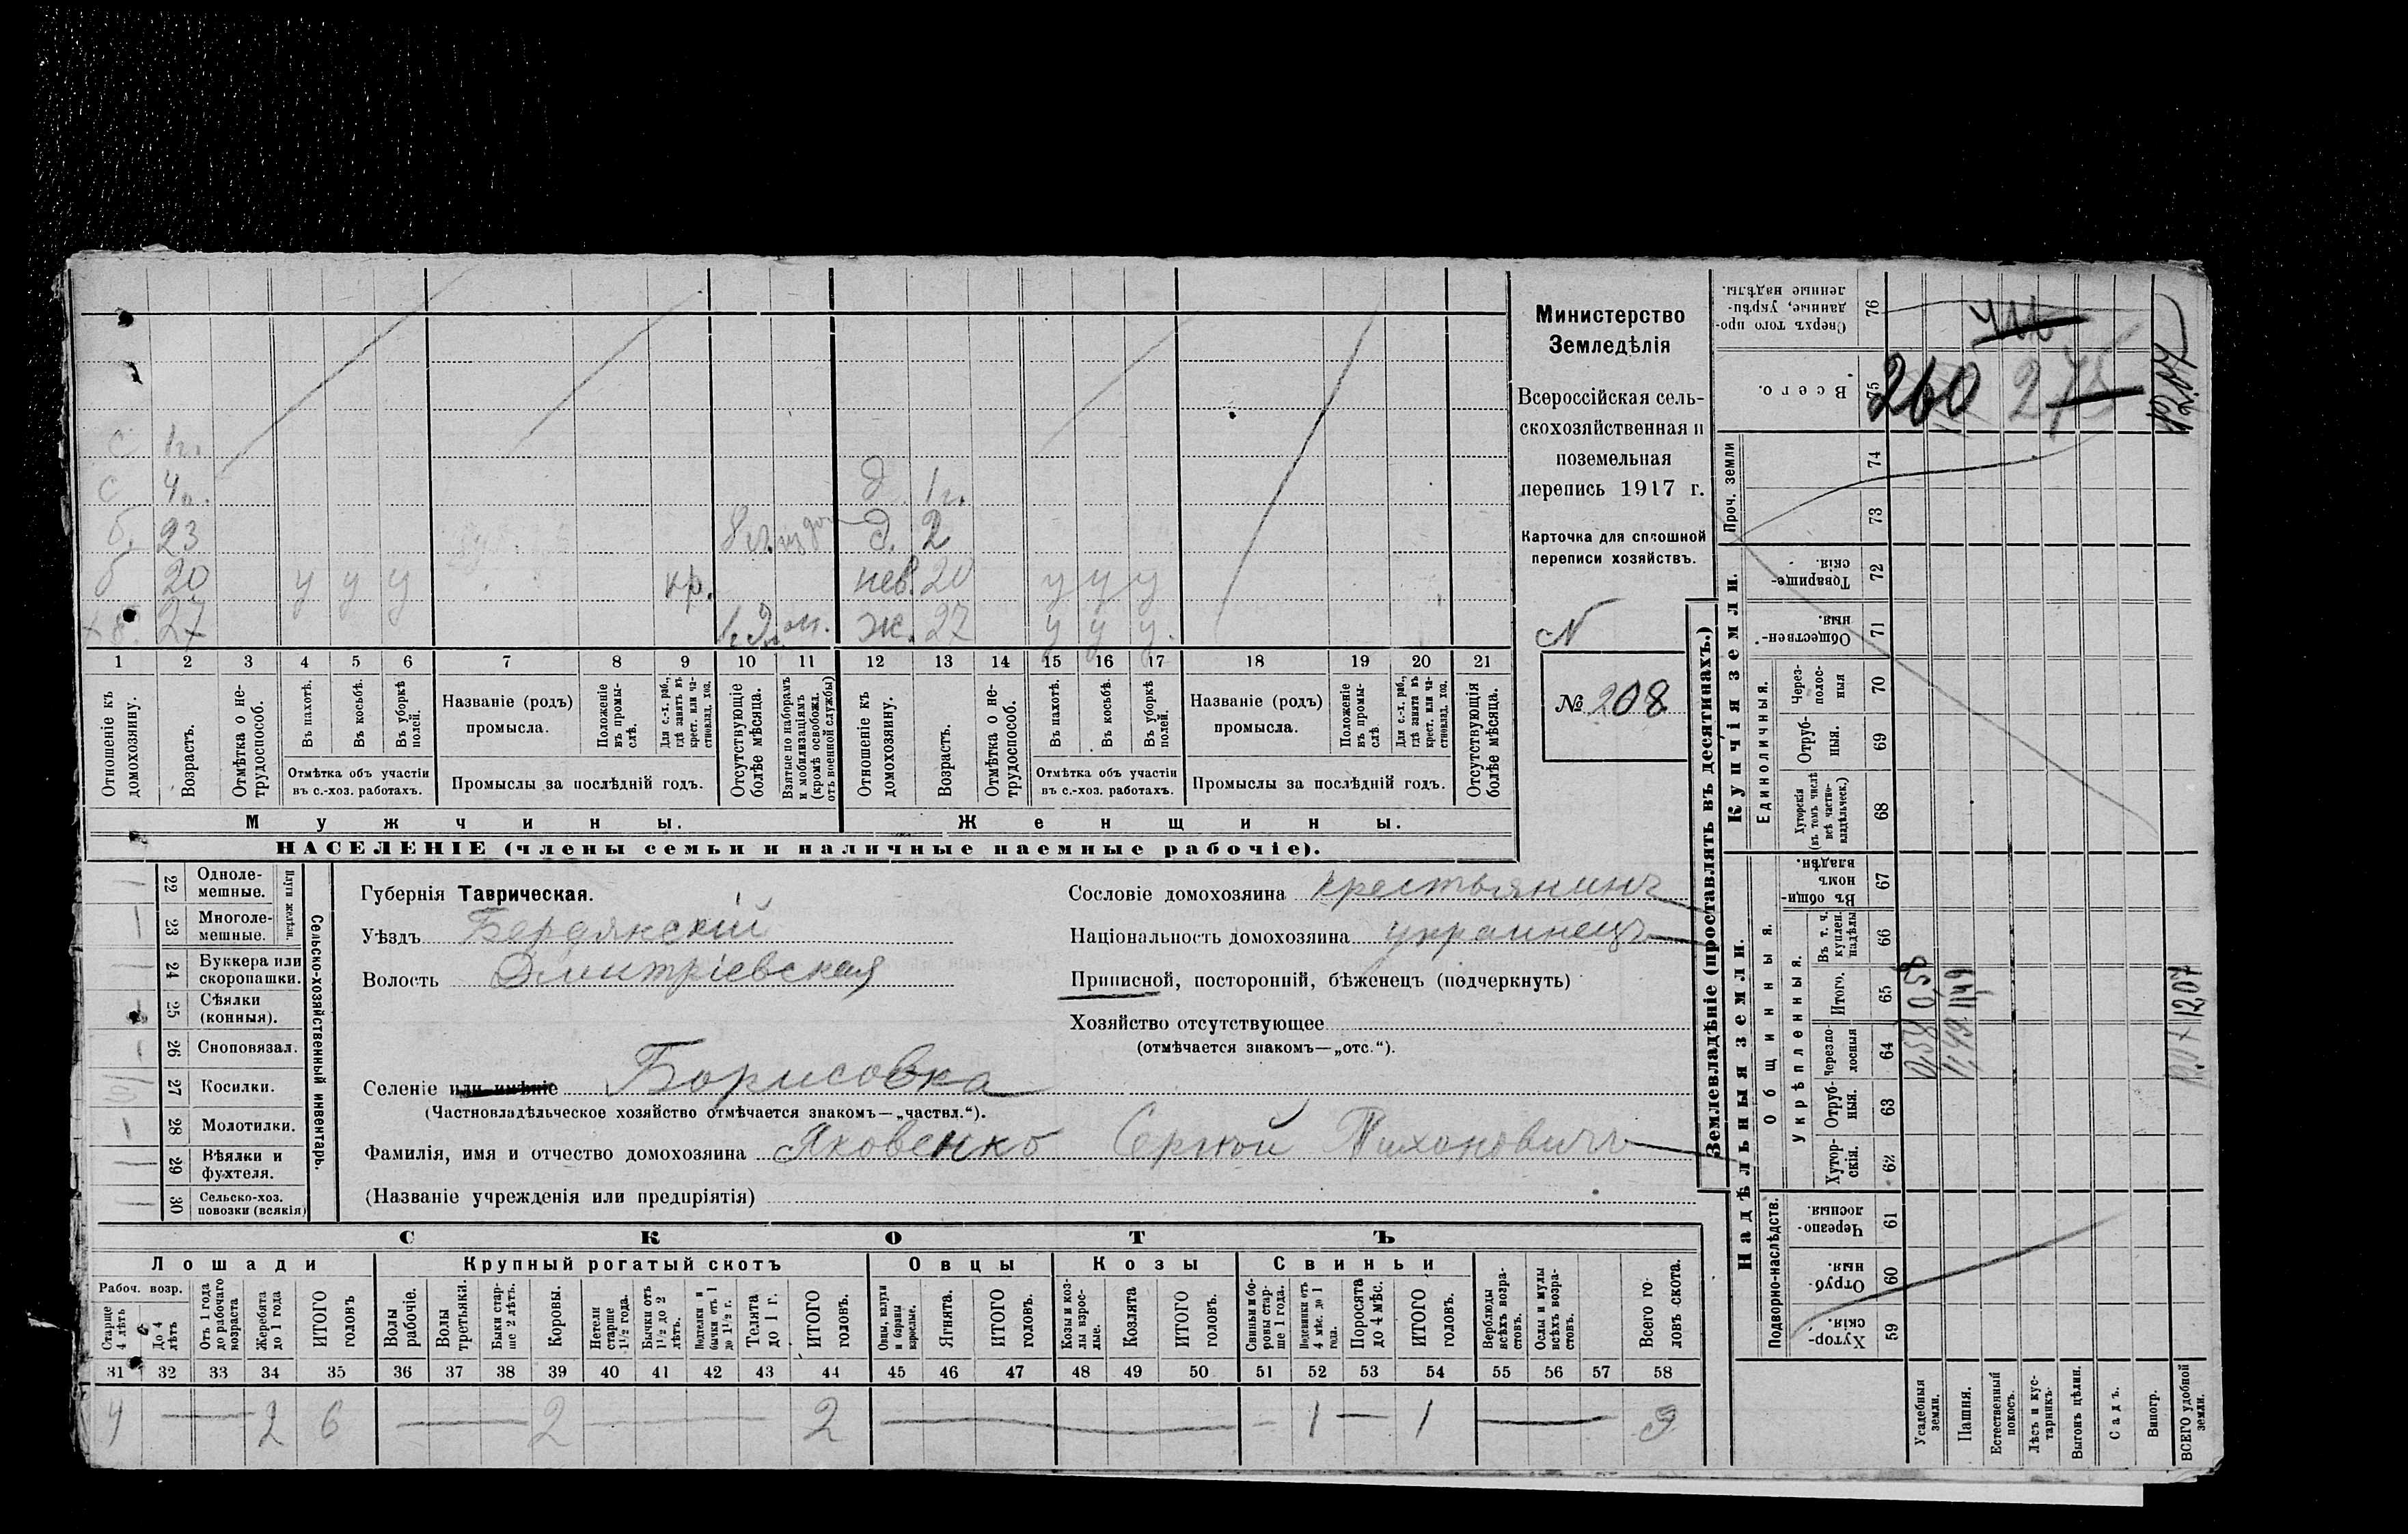 с 1г.
с 4г. д 1г.
б. 23 д. 2
б 20 у у у кр. нев. 20 у у у
27 ж. 27 у у у
1 2 3 4 5 6 7 8 9 10 11 12 13 14 15 16 17 18 19 20 21
Отношеніе къ домохозяину.
Возрастъ.
Отмѣтка о не-трудоспособ.
Въ пахотѣ.
Въ косьбѣ.
Въ уборкѣ полей.
Отмѣтка объ участіи въ с.-хоз. работахъ.
Названіе (родъ) промысла.
Положеніе въ промы-слѣ.
Для с.-х. раб., гдѣ занятъ въ крест. или ча-стновлад. хоз.
Промыслы за послѣдній годъ.
Отсутствующіе болѣе мѣсяца.
Взятые по наборамъ и мобилизаціямъ (кромѣ освобожд. отъ военной службы)
Отношеніе къ домохозяину.
Возрастъ.
Отмѣтка о не-трудоспособ.
Въ пахотѣ.
Въ косьбѣ.
Въ уборкѣ полей.
Отмѣтка объ участіи въ с.-хоз. работахъ.
Названіе (родъ) промысла.
Положеніе въ промы-слѣ
Для с.-х. раб., гдѣ занята въ крест. или ча-стновлад. хоз.
Промыслы за послѣдній годъ.
Отсутствующія болѣе мѣсяца.
Мужчины. Женщины.
НАСЕЛЕНІЕ (члены семьи и наличные наемные рабочіе).
Министерство
Земледѣлія
Всероссійская сель-
скохозяйственная и
поземельная
перепись 1917 г.
Карточка для сплошной
переписи хозяйствъ.
N
№ 208
22 Однолемешные.
23 Многолемешные.
Плуги желѣзн.
24 Буккера или скоропашки.
25 Сѣялки (конныя).
26 Сноповязал.
27 Косилки.
28 Молотилки.
29 Вѣялки и фухтеля.
30 Сельско-хоз. повозки (всякія)
Сельско-хозяйственный инвентарь.
Губернія Таврическая.
Уѣздъ Бердянскій
Волость Дмитріевская
Селеніе или имѣніе Борисовка
(Частновладѣльческое хозяйство отмѣчается знакомъ—„частвл.“).
Фамилія, имя и отчество домохозяина Яковенко Сергій Тихоновичъ
(Названіе учрежденія или предпріятія)
Сословіе домохозяина крестьянинъ
Національность домохозяина украинецъ
Приписной, посторонній, бѣженецъ (подчеркнуть)
Хозяйство отсутствующее
(отмѣчается знакомъ—„отс.“).
СКОТЪ
Лошади Крупный рогатый скотъ Овцы Козы Свиньи
Рабоч. возр.
Старше 4 лѣтъ
До 4 лѣтъ
Отъ 1 года до рабочаго возраста
Жеребята до 1 года
ИТОГО головъ
Волы рабочіе.
Волы третьяки.
Быки стар-ше 2 лѣтъ.
Коровы.
Нетели старше 1½ года.
Бычки отъ 1½ до 2 лѣтъ.
Подтелки и бычки отъ 1 до 1½ г.
Телята до 1 г.
ИТОГО головъ.
Овцы, валухи и бараны взрослые.
Ягнята.
ИТОГО головъ.
Козы и коз-лы взрос-лые.
Козлята
ИТОГО головъ.
Свиньи и бо-ровы стар-ше 1 года.
Подсвинки отъ 4 мѣс. до 1 года.
Поросята до 4 мѣс.
ИТОГО головъ.
Верблюды всѣхъ возра-стовъ.
Ослы и мулы всѣхъ возра-стовъ.
Всего го-ловъ скота.
31 32 33 34 35 36 37 38 39 40 41 42 43 44 45 46 47 48 49 50 51 52 53 54 55 56 57 58
4 — 2 6 — 2 — 2 — — 1 — 1 — 9
Землевладѣніе (проставлять въ десятинахъ.)
Купчія земли.
Надѣльныя земли.
Сверхъ того про-данные, укрѣп-ленные надѣлы. 76
Всего. 75 260 275 12.07
Проч. земли 74 73
Товарище-скія. 72
Обществен-ныя. 71
Единоличныя.
Через-полос-ныя 70
Отруб-ныя. 69
Хуторскія (въ томъ числѣ всѣ частно-владѣльческ.) 68
Общинныя.
Въ общин-номъ владѣн. 67
Укрѣпленныя.
Въ т. ч. куплен. надѣлы 66
Итого. 65 0,58 11,49 12.07
Черезпо-лосныя 64 0,58 11,49 12.07
Отруб-ныя. 63
Хутор-скія. 62
Подворно-наслѣдств.
Черезпо-лосныя. 61
Отруб-ныя. 60
Хутор-скія. 59
Усадебныя земли.
Пашня.
Естественный покосъ.
Лѣсъ и кус-тарникъ.
Выгонъ цѣлин.
Садъ.
Виногр.
ВСЕГО удобной земли.